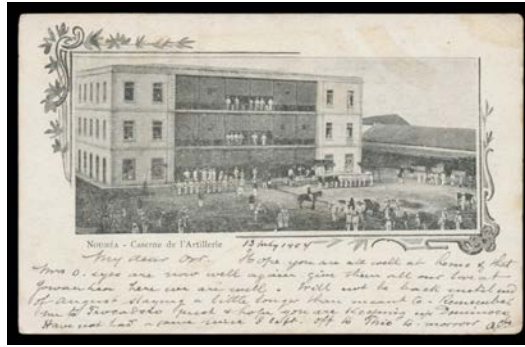 NOUMÉA - Caserne de l'Artillerie
13 July 1904
My dear Hope you are all well at home & that
Mrs O. eyes are now well again give them all our love at
here we are well. Will not be back until end
of August staying a little longer than meant to. Remember
me to & hope you are keeping up Dominoes
Have not had a game since I left. off to to-morrow